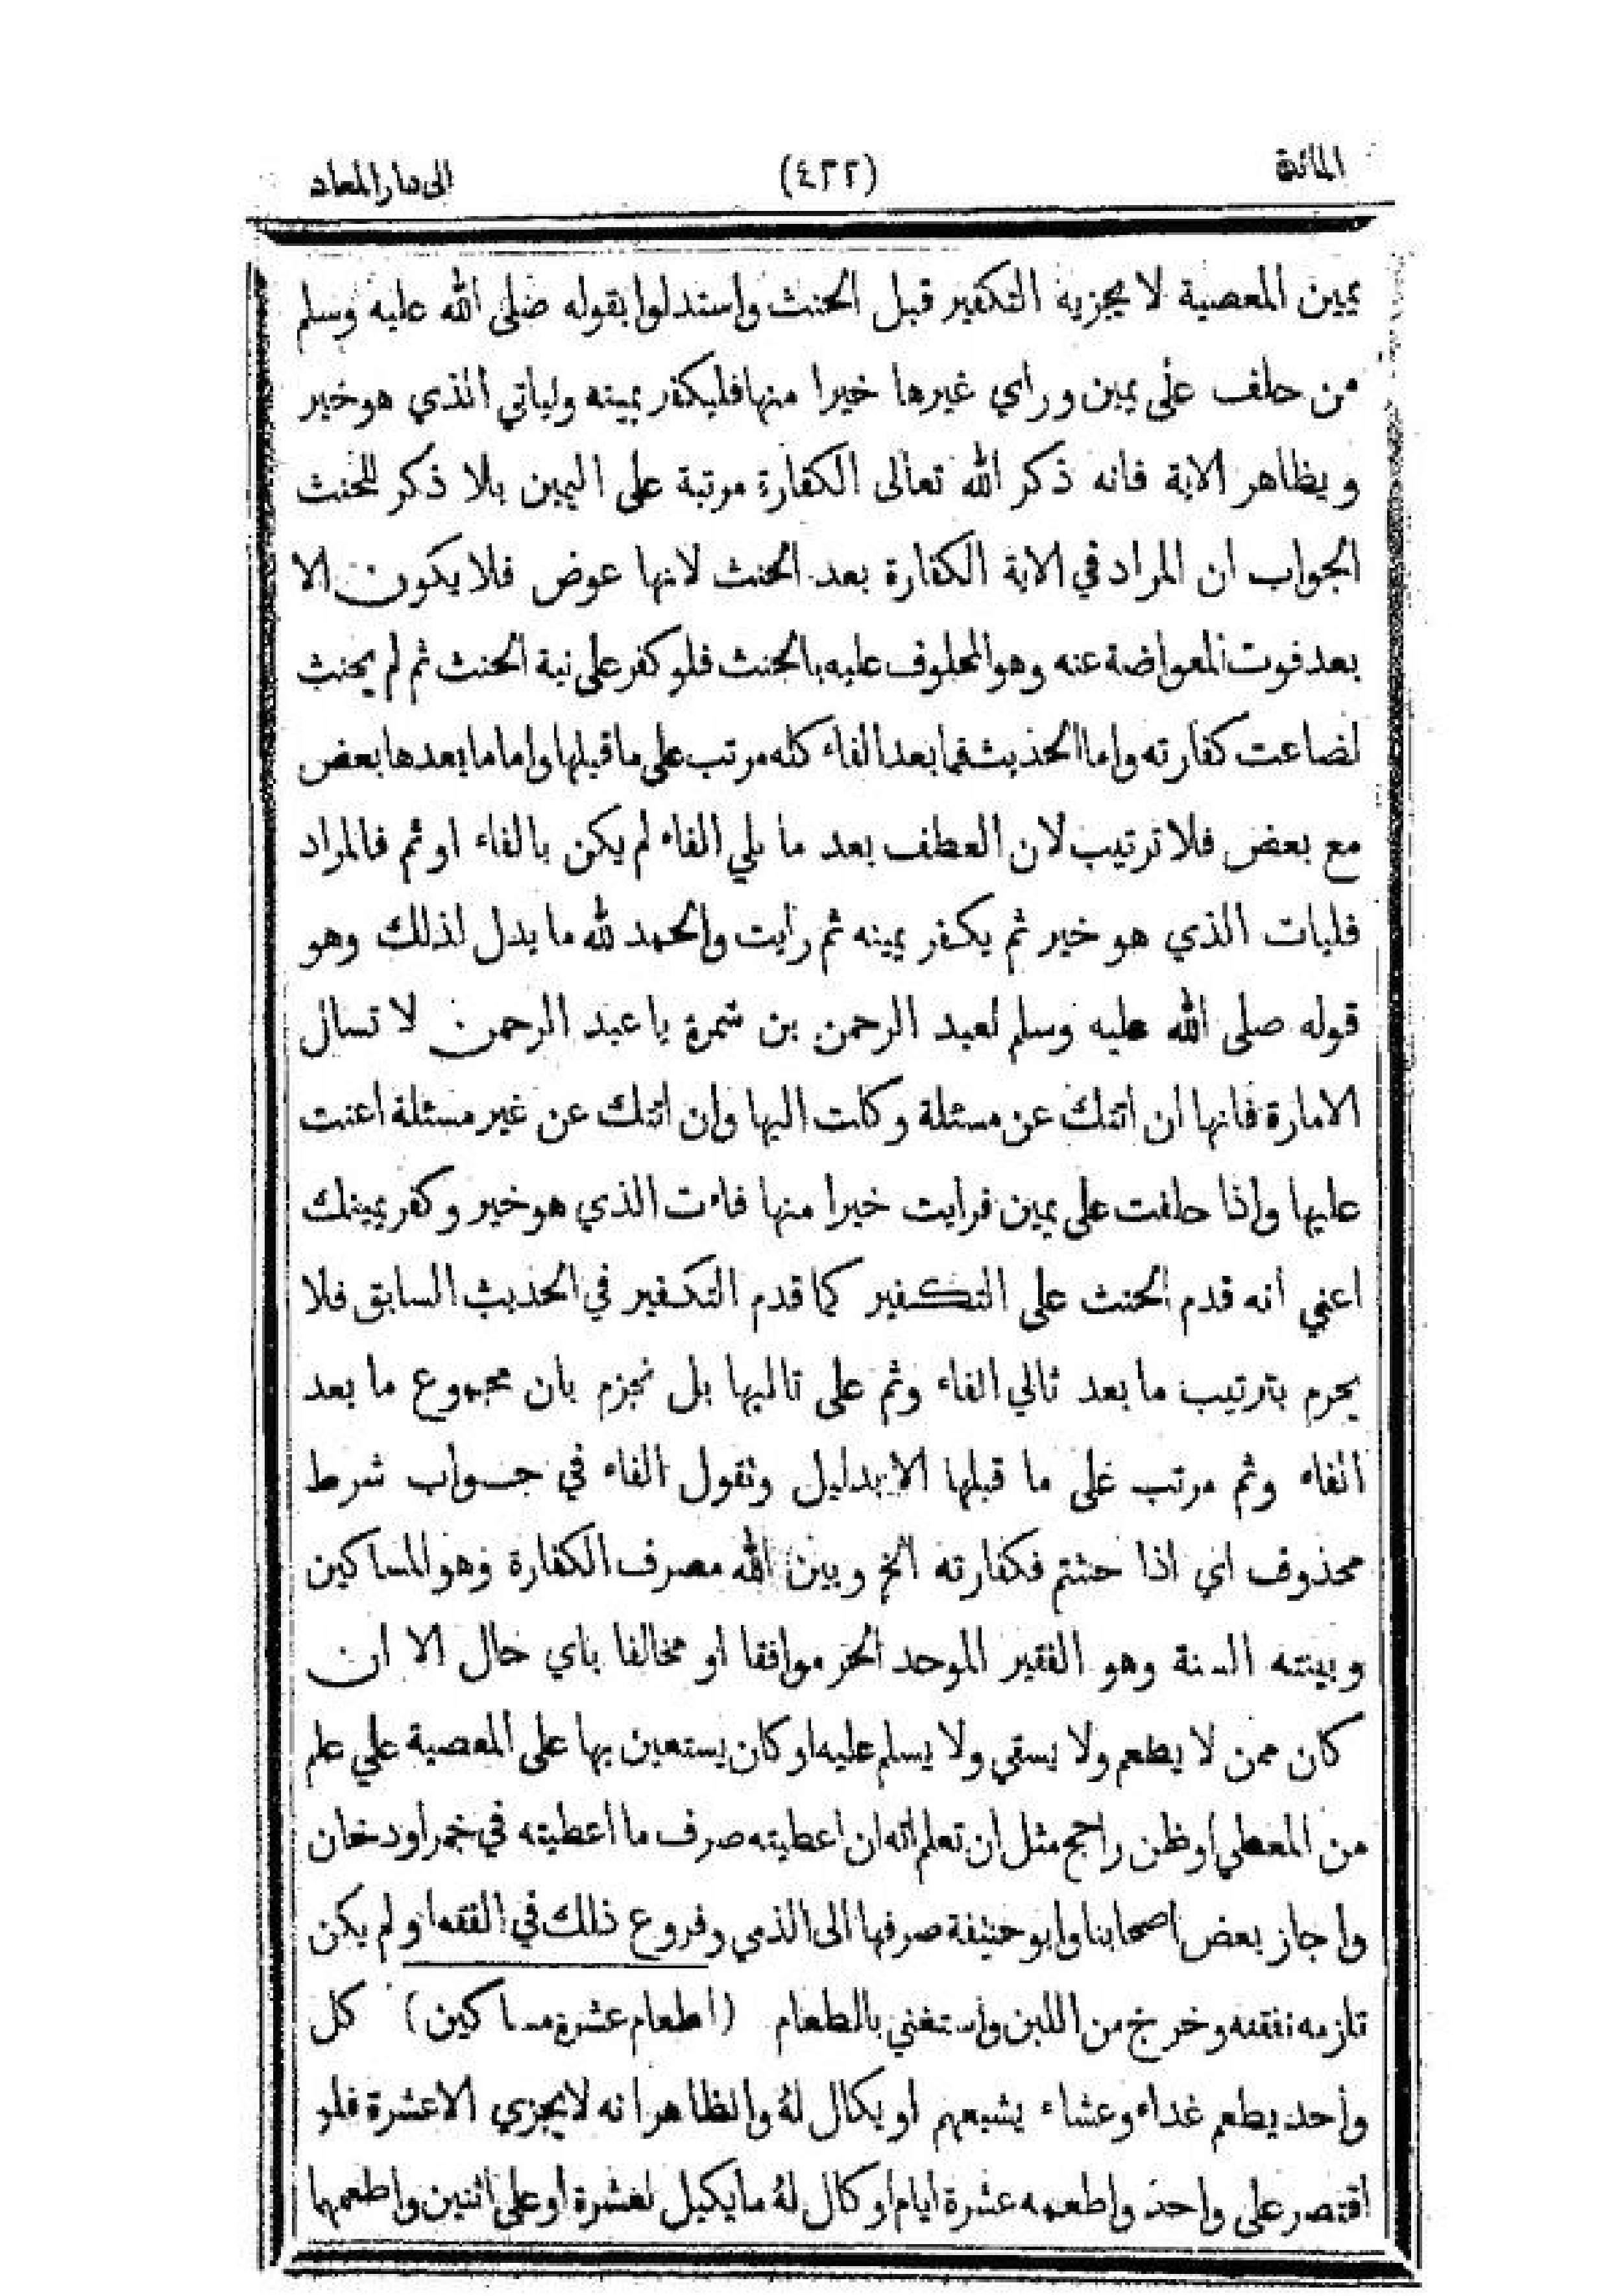 المائدة (٤٢٢) الى دار المعاد
يمين المعصية لا يجزيه التكفير قبل الحنث واستدلوا بقوله صلى الله عليه وسلم
من حلف على يمين وراي غيرها خيرا منها فليكفر يمينه ولياتي الذي هو خير
وبظاهر الاية فانه ذكر الله تعالى الكفارة مرتبة على اليمين بلا ذكر للحنث
الجواب ان المراد في الاية الكفارة بعد الحنث لانها عوض فلا يكون الا
بعد فوت المعواضة عنه وهو المحلوف عليه بالحنث فلو كفر على نية الحنث ثم لم يحنث
لضاعت كفارته واما الحذيث فما بعد الفاء كله مرتب على ما قبلها واما ما بعدها بعض
مع بعض فلا ترتيب لان العطف بعد ما يلي الفاء لم يكن بالفاء او ثم فالمراد
فليات الذي هو خير ثم يكفر يمينه ثم رأيت والحمد لله ما يدل لذلك وهو
قوله صلى الله عليه وسلم لعبد الرحمن بن سمرة يا عبد الرحمن لا تسال
الامارة فانها ان اتتك عن مسئلة وكلت اليها وان اتتك عن غير مسئلة اعنت
عليها واذا حلفت على يمين فرايت خيرا منها فاءت الذي هو خير وكفر يمينك
اعني أنه قدم الحنث على التكفير كما قدم التكفير في الحديث السابق فلا
يحرم بترتيب ما بعد تالي الفاء وثم على تاليها بل نجزم بان مجموع ما بعد
الفاء وثم مرتب على ما قبلها الا بدليل ونقول الفاء في جواب شرط
محذوف اي اذا حنثتم فكفارته الخ وبين الله مصرف الكفارة وهو المساكين
وبينته السنة وهو الفقير الموحد الحر موافقا او مخالفا باي حال الا ان
كان ممن لا يطعم ولا يسقي ولا يسلم عليه او كان يستعين بها على المعصية علي علم
من المعطي او ظن راجح مثل ان تعلم انه ان اعطيته صرف ما اعطيته في خمر او دخان
واجاز بعض اصحابنا وابو حنيفة صرفها الى الذمي وفروع ذلك في الفقه او لم يكن
تلزمه نفقته وخرج من اللبن واستغني بالطعام (اطعام عشرة مساكين) كل
واحد يطعم غداء وعشاء يشبعهم او يكال لهُ والظاهر انه لا يجزي الا عشرة فلو
اقتصر على واحد واطعمه عشرة ايام او كال لهُ ما يكيل لعشرة او على اثنين واطعمهما